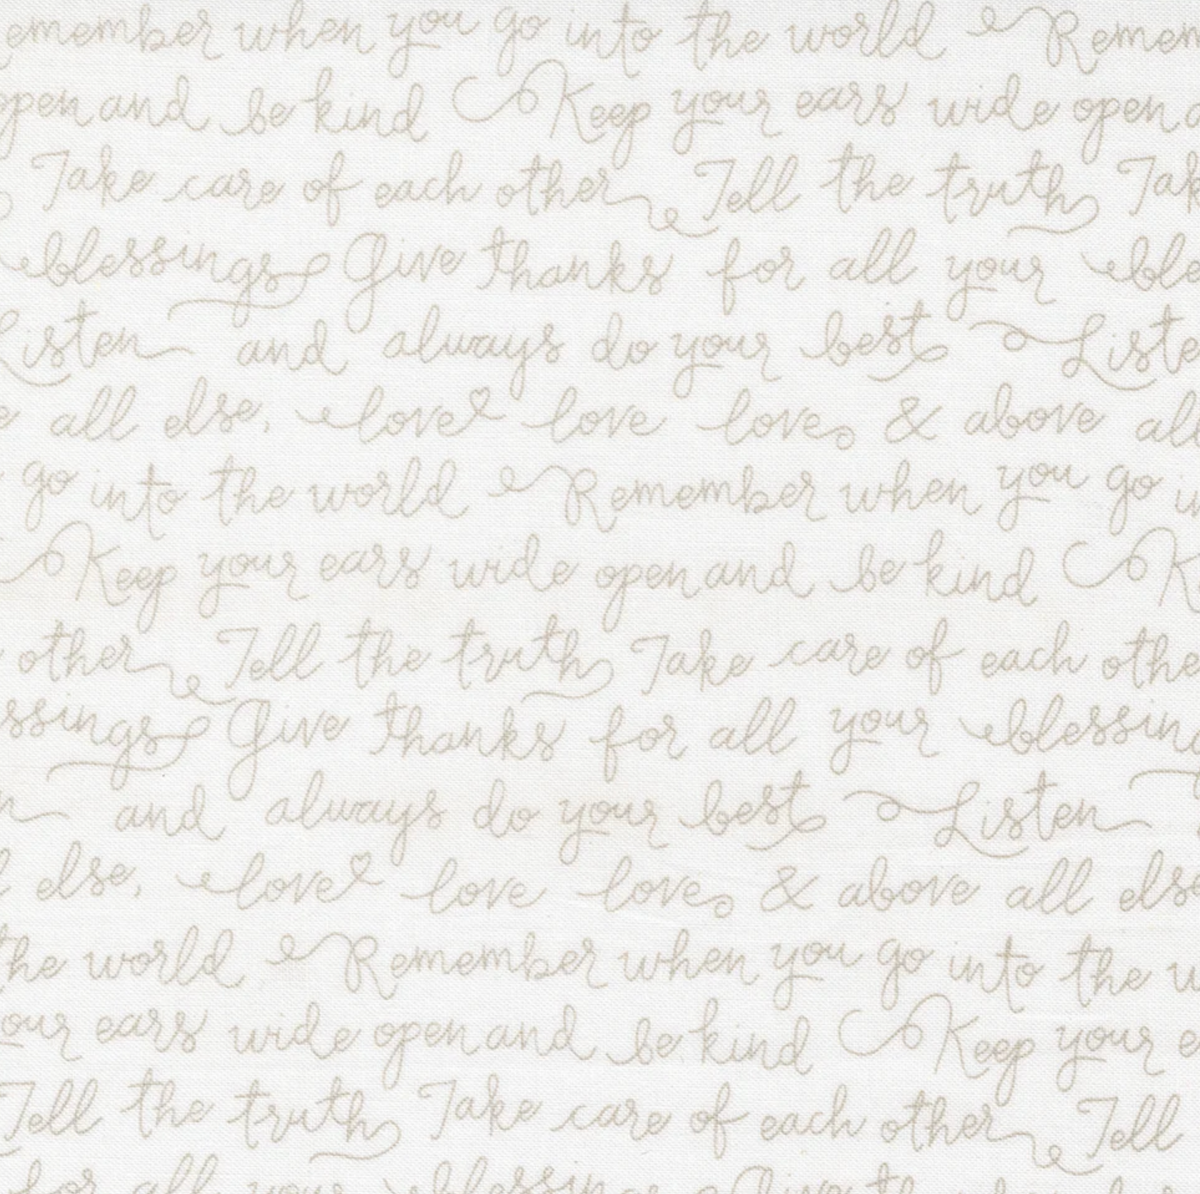 emember when you go into the world Remem
open and be kind Keep your ears wide open a
Take care of each other Tell the truth Tak
blessings Give thanks for all your ble
Listen and always do your best Liste
e all else, love love love & above all
go into the world Remember when you go in
Keep your ears wide open and be kind K
other Tell the truth Take care of each othe
ssings Give thanks for all your blessing
n and always do your best Listen
l else, love love love & above all else
the world Remember when you go into the w
our ears wide open and be kind Keep your e
Tell the truth Take care of each other Tell
for all your blessings Give thanks